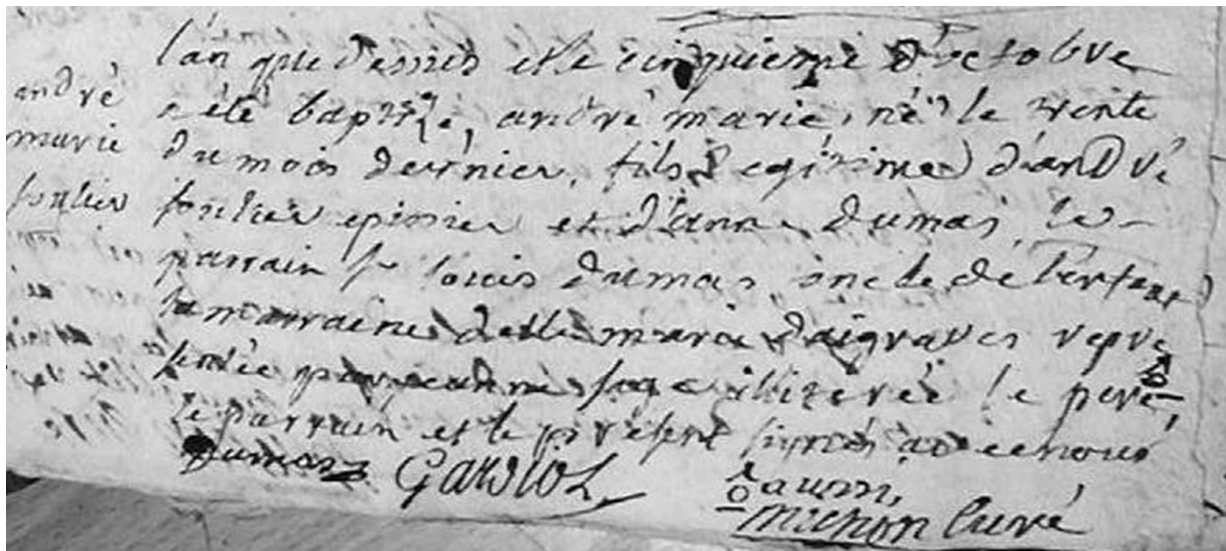 andré
marie
foulier
l'an que dessus et le cinquieme d'octobre
a été baptizé, andré marie, né le trente
du mois dernier, fils legitime d'andré
foulier epicier et d'anne dumas, le
parrain sr louis dumas oncle de l'enfant
la marraine delle marie daigraves repré
sentée par jeanne illiterée le pere,
le parrain et le présent signés avec nous
Dumas Gardiol
michon curé